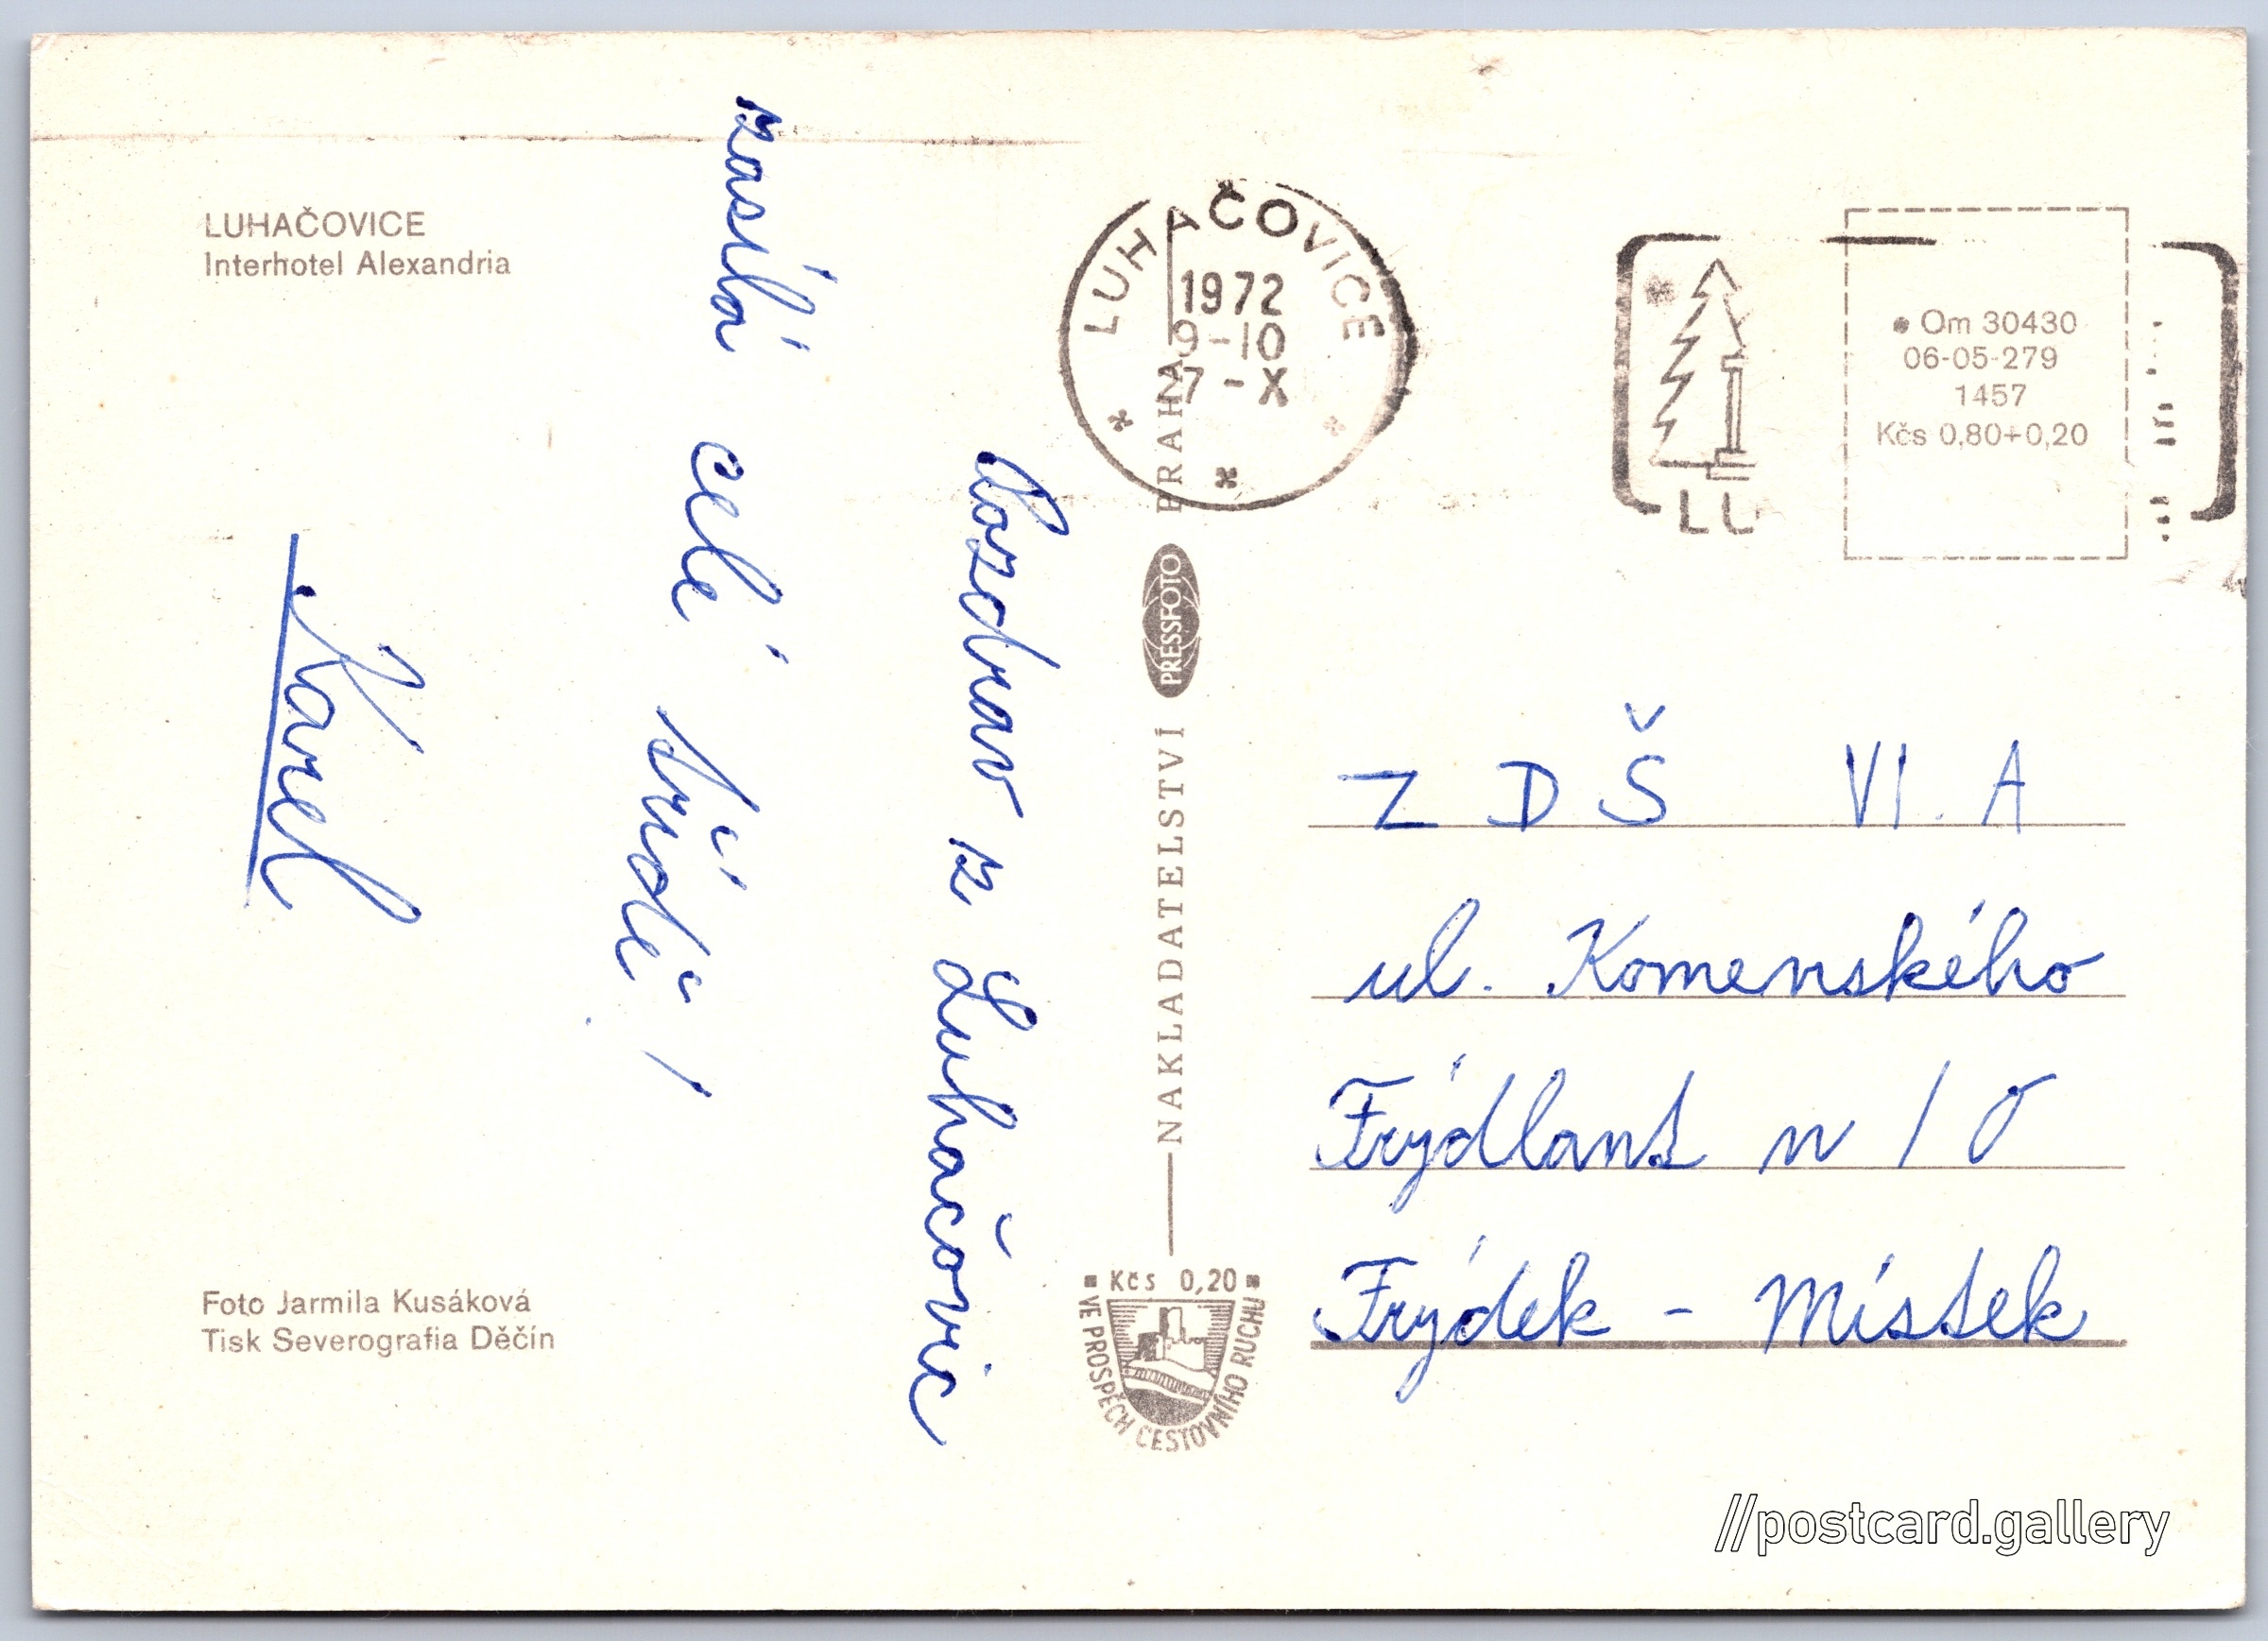 LUHAČOVICE
Interhotel Alexandria
Pozdrav z Luhačovic
zasílá celé třídě!
Karel
Foto Jarmila Kusáková
Tisk Severografia Děčín
LUHAČOVICE
1972
9-10
7-X
NAKLADATELSTVÍ PRESSFOTO PRAHA
Kčs 0,20
VE PROSPĚCH CESTOVNÍHO RUCHU
LU
Om 30430
06-05-279
1457
Kčs 0,80+0,20
ZDŠ VI. A
ul. Komenského
Frýdlant n/O
Frýdek - Místek
//postcard.gallery